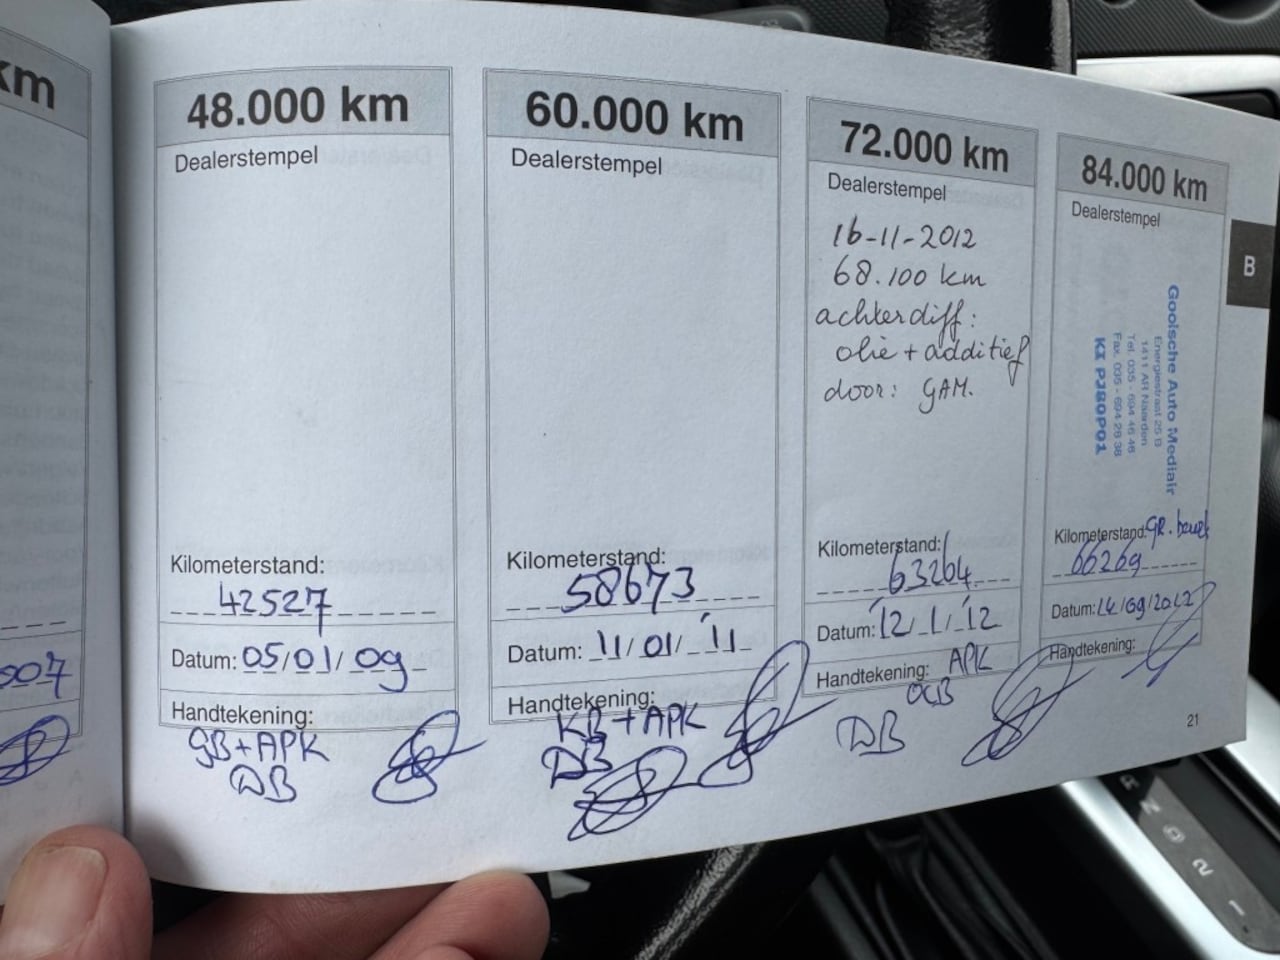 km
007
48.000 km
Dealerstempel
Kilometerstand:
42527
Datum: 05/01/09
Handtekening:
GB+APK
DB
60.000 km
Dealerstempel
Kilometerstand:
58673
Datum: 11/01/'11
Handtekening:
KB+APK
DB
72.000 km
Dealerstempel
16-11-2012
68.100 km
achterdiff:
olie + additief
door: GAM.
Kilometerstand:
63264
Datum: 12/1/'12
Handtekening: APK
DB
84.000 km
Dealerstempel
Gooische Auto Mediair
Energiestraat 25 B
1411 AR Naarden
Tel. 035 - 694 46 46
Fax. 035 - 694 28 38
KI PJ80P01
Kilometerstand: GR. beurt
66269
Datum: 14/09/2012
Handtekening:
21
B
R
N
D
2
1